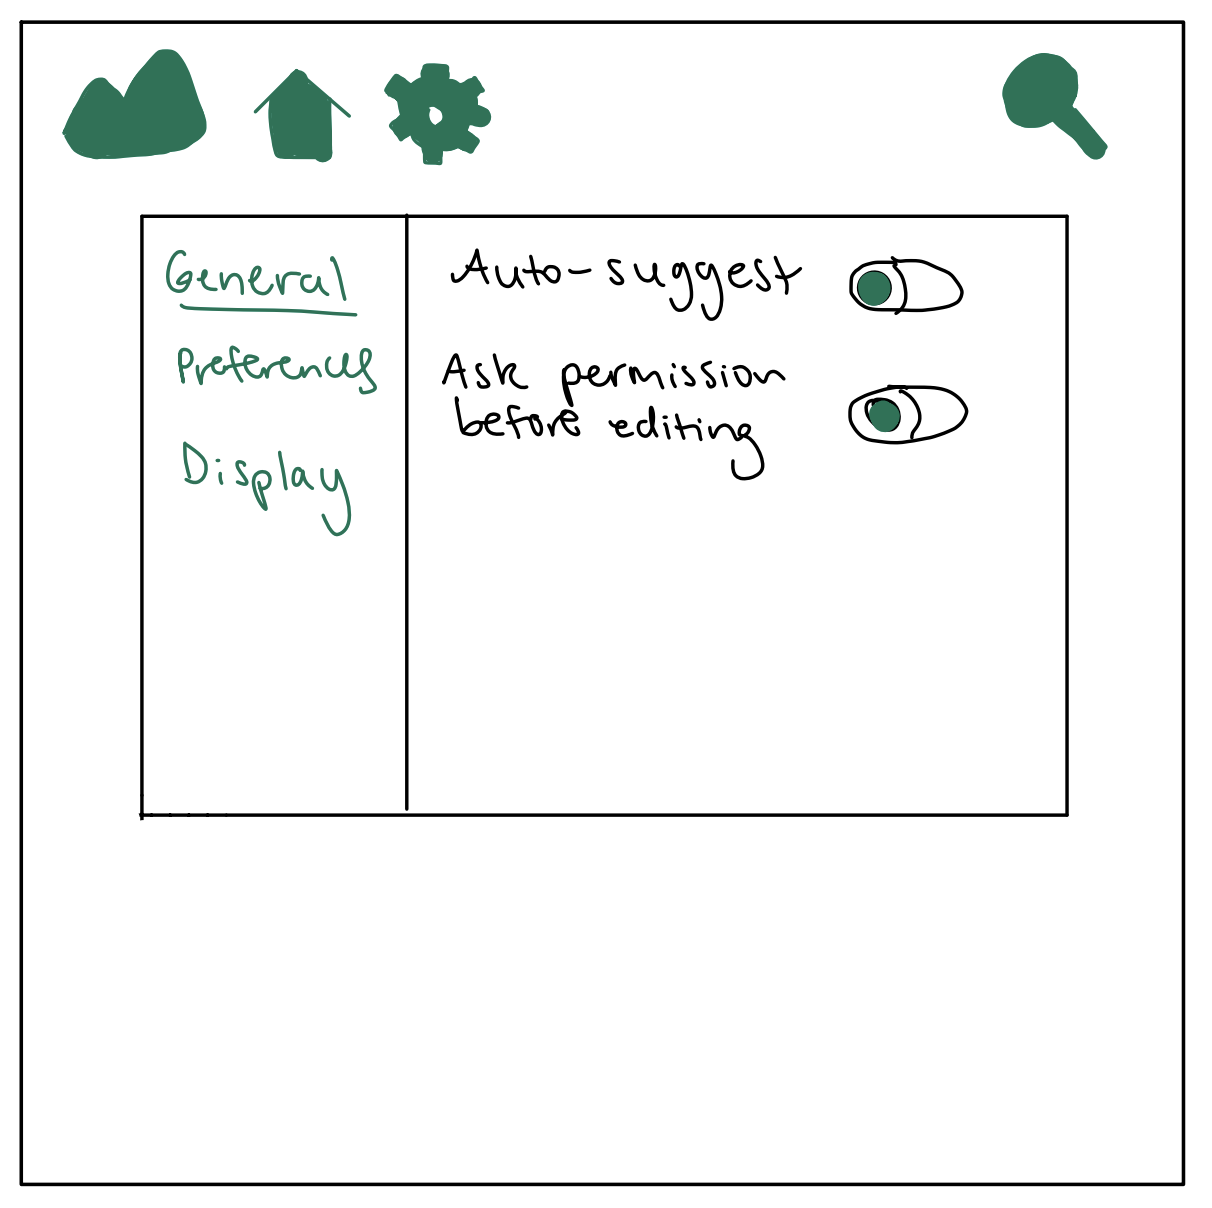 General
Preferences
Display
Auto-suggest
Ask permission
before editing